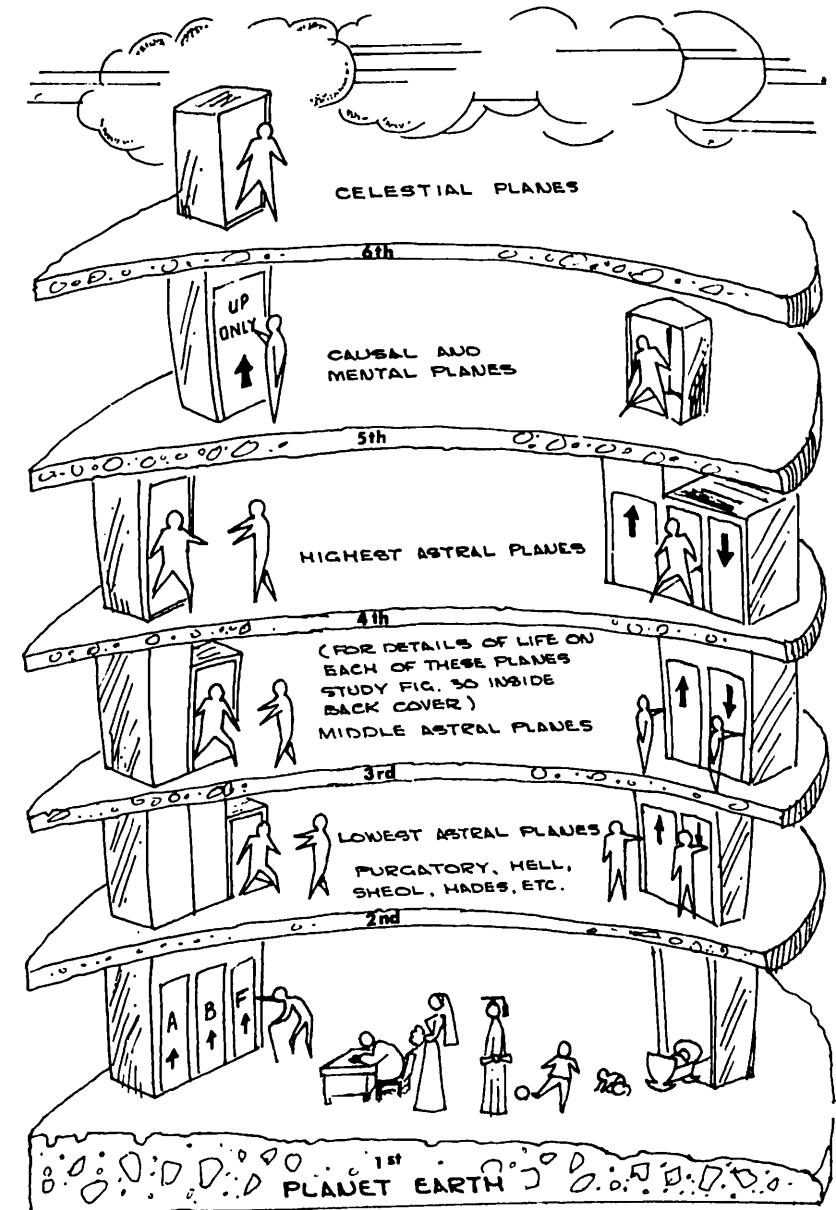 CELESTIAL PLANES
6th
UP
ONLY
CAUSAL AND
MENTAL PLANES
5th
HIGHEST ASTRAL PLANES
4th
(FOR DETAILS OF LIFE ON
EACH OF THESE PLANES
STUDY FIG. 30 INSIDE
BACK COVER)
MIDDLE ASTRAL PLANES
3rd
LOWEST ASTRAL PLANES
PURGATORY, HELL,
SHEOL, HADES, ETC.
2nd
A B F
1st
PLANET EARTH